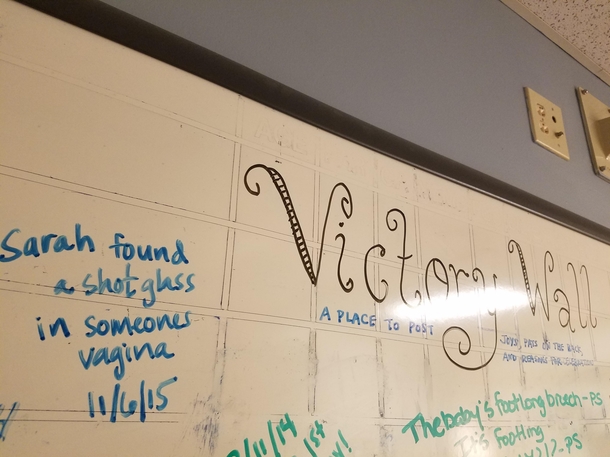 Victory Wall
A PLACE TO POST
JOYS, PATS ON THE BACK,
AND REASONS FOR CELEBRATION
Sarah found
a shotglass
in someones
vagina
11/6/15
/11/14
1st
The baby's footlong breech-PS
It's footling